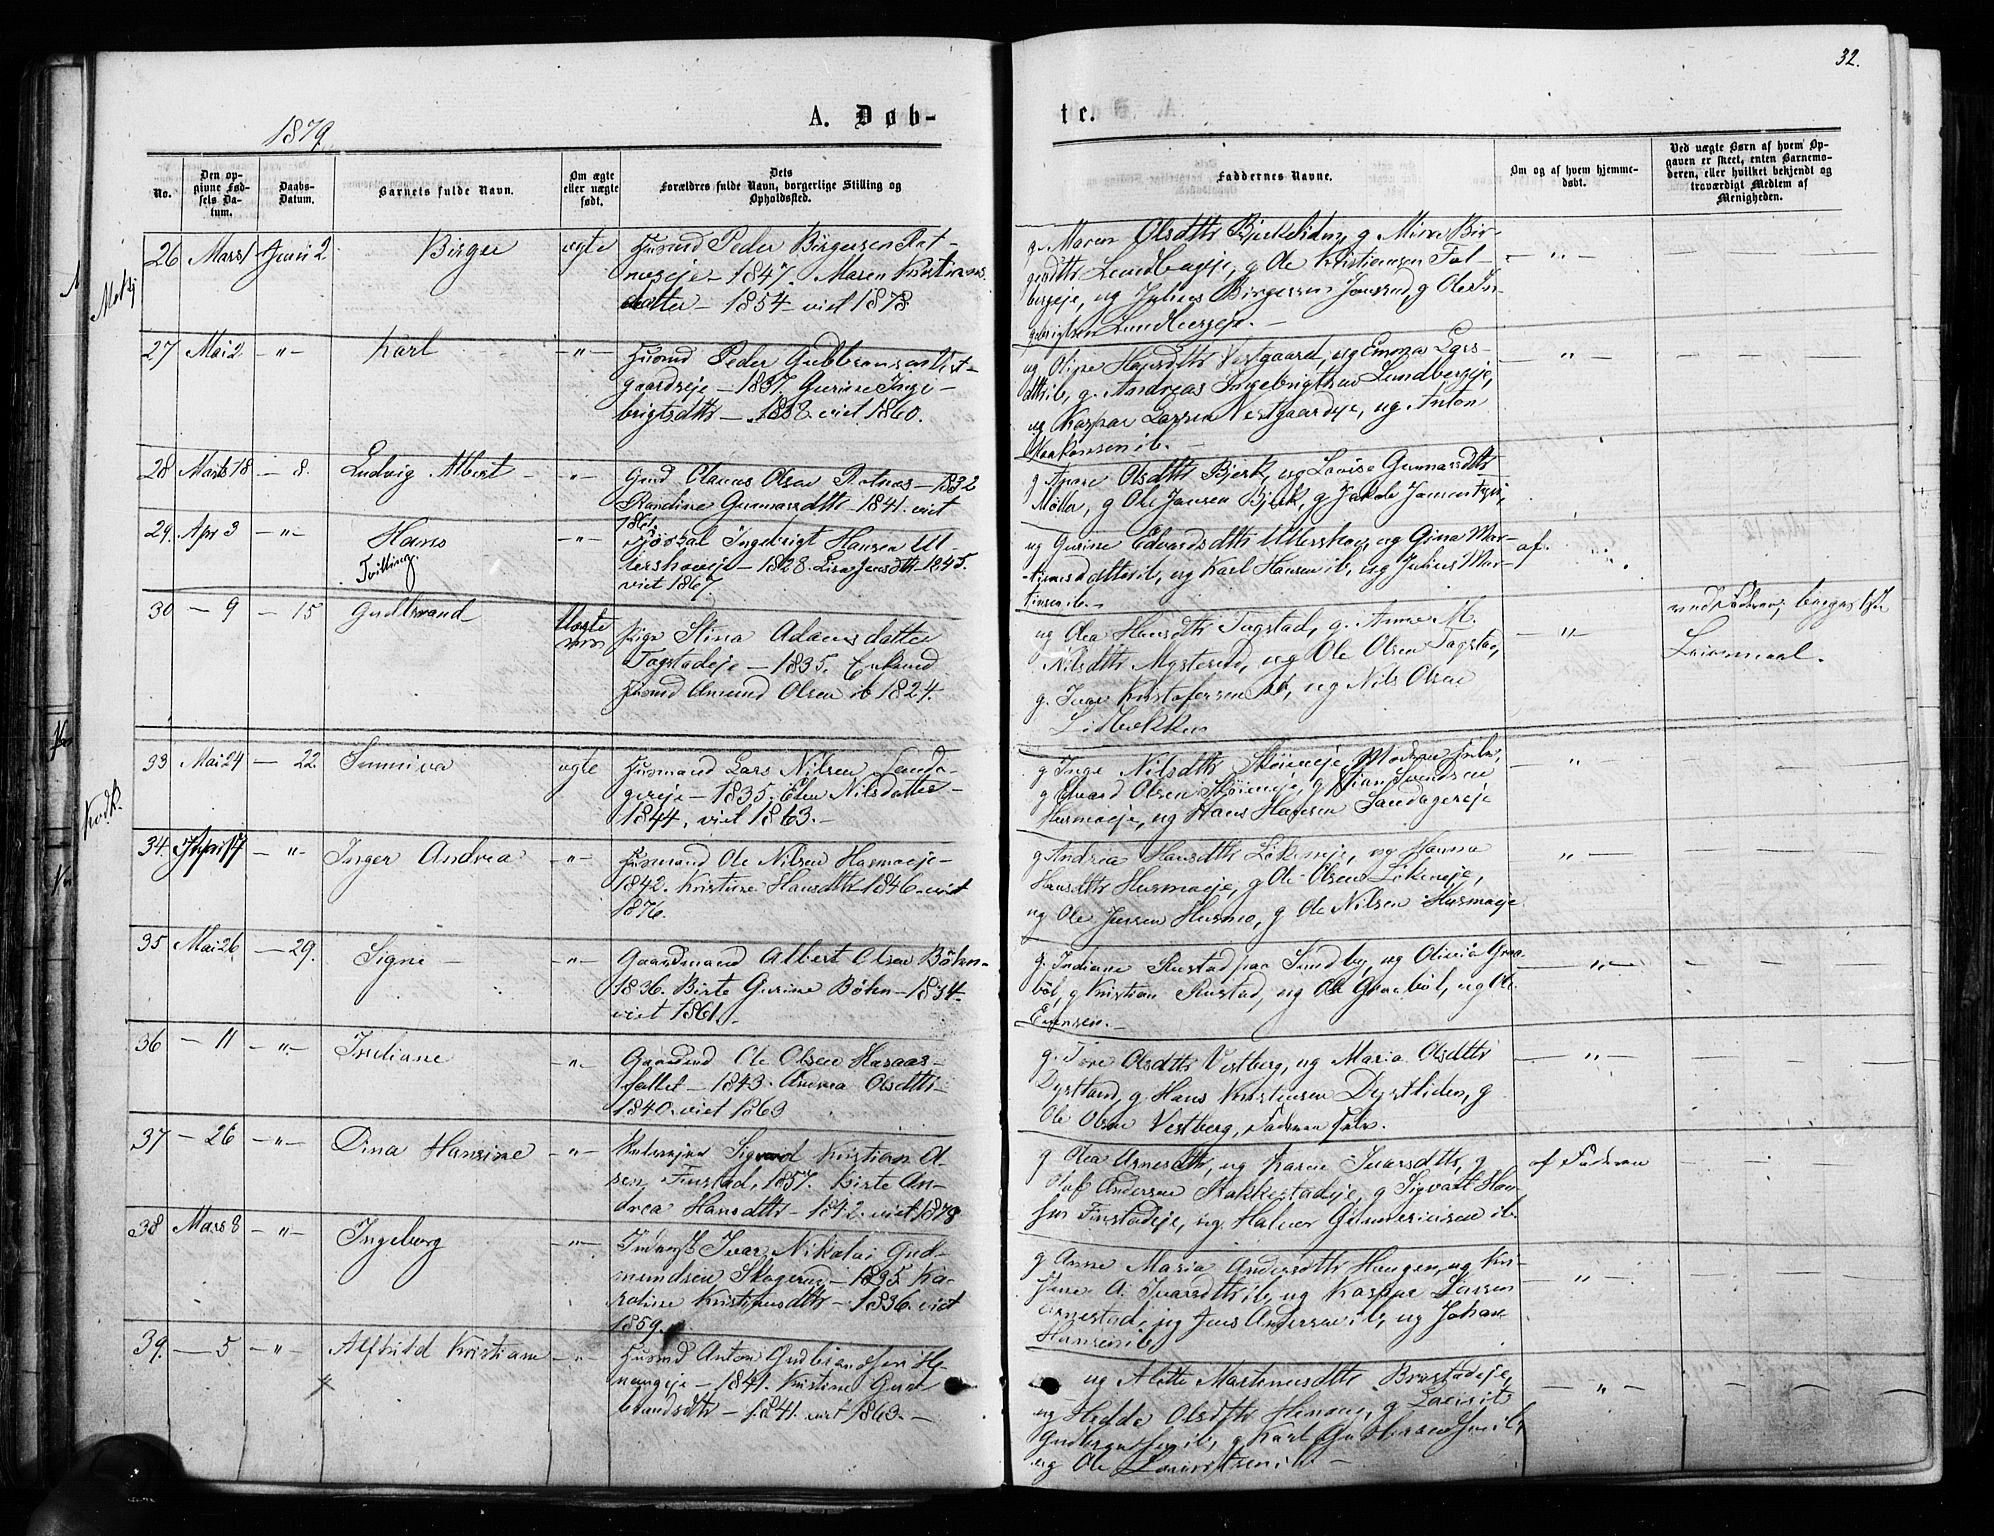 32.
1879.
A. Døb-
te.
No.
Den op-
givne Fød-
sels Da-
tum.
Daabs-
Datum.
Barnets fulde Navn.
Om ægte
eller uægte
født.
Dets
Forældres fulde Navn, borgerlige Stilling og
Opholdssted.
Faddernes Navne.
Om og af hvem hjemme-
døbt.
Ved uægte Børn af hvem Op-
gaven er skeet, enten Barnemo-
deren, eller hvilket bekjendt og
troværdigt Medlem af
Menigheden.
26 Mars 1 Juni 2 Birger ægte Husmd Peder Birgersen Rot-
næseje - 1847. Maren Kristians
datter - 1854 - viet 1878
g. Maren Olsdtr Bjerkeliden, g Mina Bir-
gersdtr Lundbyeje, g Ole Kristiansen Fal-
bergeje, ug Julius Birgersen Jonsrud, g Ole In-
gebrigtsen Lundbergeje. -
27 Mai 2 -"- Karl -"- Husmd Peder Gulbransen Vest-
gaardseje - 1837. Gurine Inge-
brigtsdtr - 1838 viet 1860.
ug Oline Hansdtr Vestgaard, ug Emma Lars-
dtr ib, g. Andreas Ingebrigtsen Lundbergeje,
ug Kaspar Larsen Vestgaardeje, ug Anton
Haakonsen ib. -
28 Marts 18 - 8. Ludvig Albert -"- Gmd Olaves Olsen Rotnæs - 1832
Randine Gunnarsdtr - 1841. viet
1861.
g Olsdtr Bjerk, ug Lovise Gunnarsdtr
Møller, g Ole Jansen Bjerk, g Jakob Jansen
29. Apr 3 -"- Hans
Tvilling. -"- Ingebrigt Hansen Ul-
lershoveje - 1828. Lisa Jensdtr - 1845.
viet 1867.
ug Gurine Edvardsdtr Ullershov, ug Gina Mar-
tinusdatter ib, ug Karl Hansen ib, ug Julius Mar-
tinsen ib. -
30 - 9 - 15 Gudbrand Uægte
Pige Stina Adamsdatter
Togstadeje - 1835. Enkemd
Husmd Amund Olsen ib 1824.
ug Olea Hansdtr Togstad, g. Anne M.
Nilsdtr Mysterud, ug Ole Olsen Togstad,
g. Ivar Kristofersen ib, ug Nils Olsen
Lidbakken
Leiermaal.
33 Mai 24 - 22. Sunniva ægte Husmand Lars Nilsen Sanda-
gereje - 1835. Elen Nilsdatter -
1844, viet 1863. -
g Inge Nilsdtr Skøieneje, Moderen selv,
g Edvard Olsen Skøieneje, g Stian Svendsen
Husmoeje, ug Hans Hansen Sandagereje
34. April 17 -"- Inger Andrea -"- Husmand Ole Nilsen Husmoeje -
1842. Kristine Hansdtr - 1846 - viet
1876.
g Andrea Hansdtr Løkeneje, ug Hanna
Hansdtr Husmoeje, g Ole Olsen Løkeneje,
ug Ole Jensen Husmo, g Ole Nilsen Husmoeje
35 Mai 26 - 29. Signe -"- Gaardmand Albert Olsen Bøhn -
1836. Birte Gurine Bøhn - 1834 -
viet 1861. -
g. Indiane Rustad paa Sundby, ug Olivia Graa-
bøl, g Kristian Rustad, ug Ole Graabøl, ug Ole
Evensen. -
36 - 11 -"- Indiane -"- Gaardmd Ole Olsen Haraas-
fallet - 1843. Andrea Olsdtr -
1840. viet 1863
g. Tore Olsdtr Vestberg, ug Maria Olsdtr
Dystland, g. Hans Kristensen Dystliden, g
Ole Olsen Vestberg, Faderen selv.
37 - 26 -"- Dina Hansine -"- Sigvard Kristian A-
sen, Finstad, 1857. Birte An-
drea Hansdtr - 1842. viet 1878
g Olea Arnesdtr, ug Karen Ivarsdtr, g
Olaf Andersen Rakkestadeje, g Sigvatt Han-
sen Finstadeje, ug. Halvor Gunneriusen ib.
af Faderen
38 Mars 8 -"- Ingeborg -"- Inderst Ivar Nikolai Gud-
mundsen Skogerud - 1835. Ka-
roline Kristiansdtr - 1836. viet
1859.
g Anne Maria Andersdtr Haugen, ug Kri-
stine A. Ivarsdtr ib, ug Kaspar Larsen
Arnestad, ug Jens Andersen ib, ug Johan
Hansen ib.
39. - 5 -"- Alfhild Kristiane -"- Husmd Anton Gudbrandsen He-
nungeje - 1841. Kristine Gud-
brandsdtr - 1841. viet 1863. -
ug Alette Martinusdtr Brustadeje,
ug Hedda Olsdtr Henung, g Laurits
Gudbrandsen ib, g Karl ib,
ug Ole Lauritsen ib. -